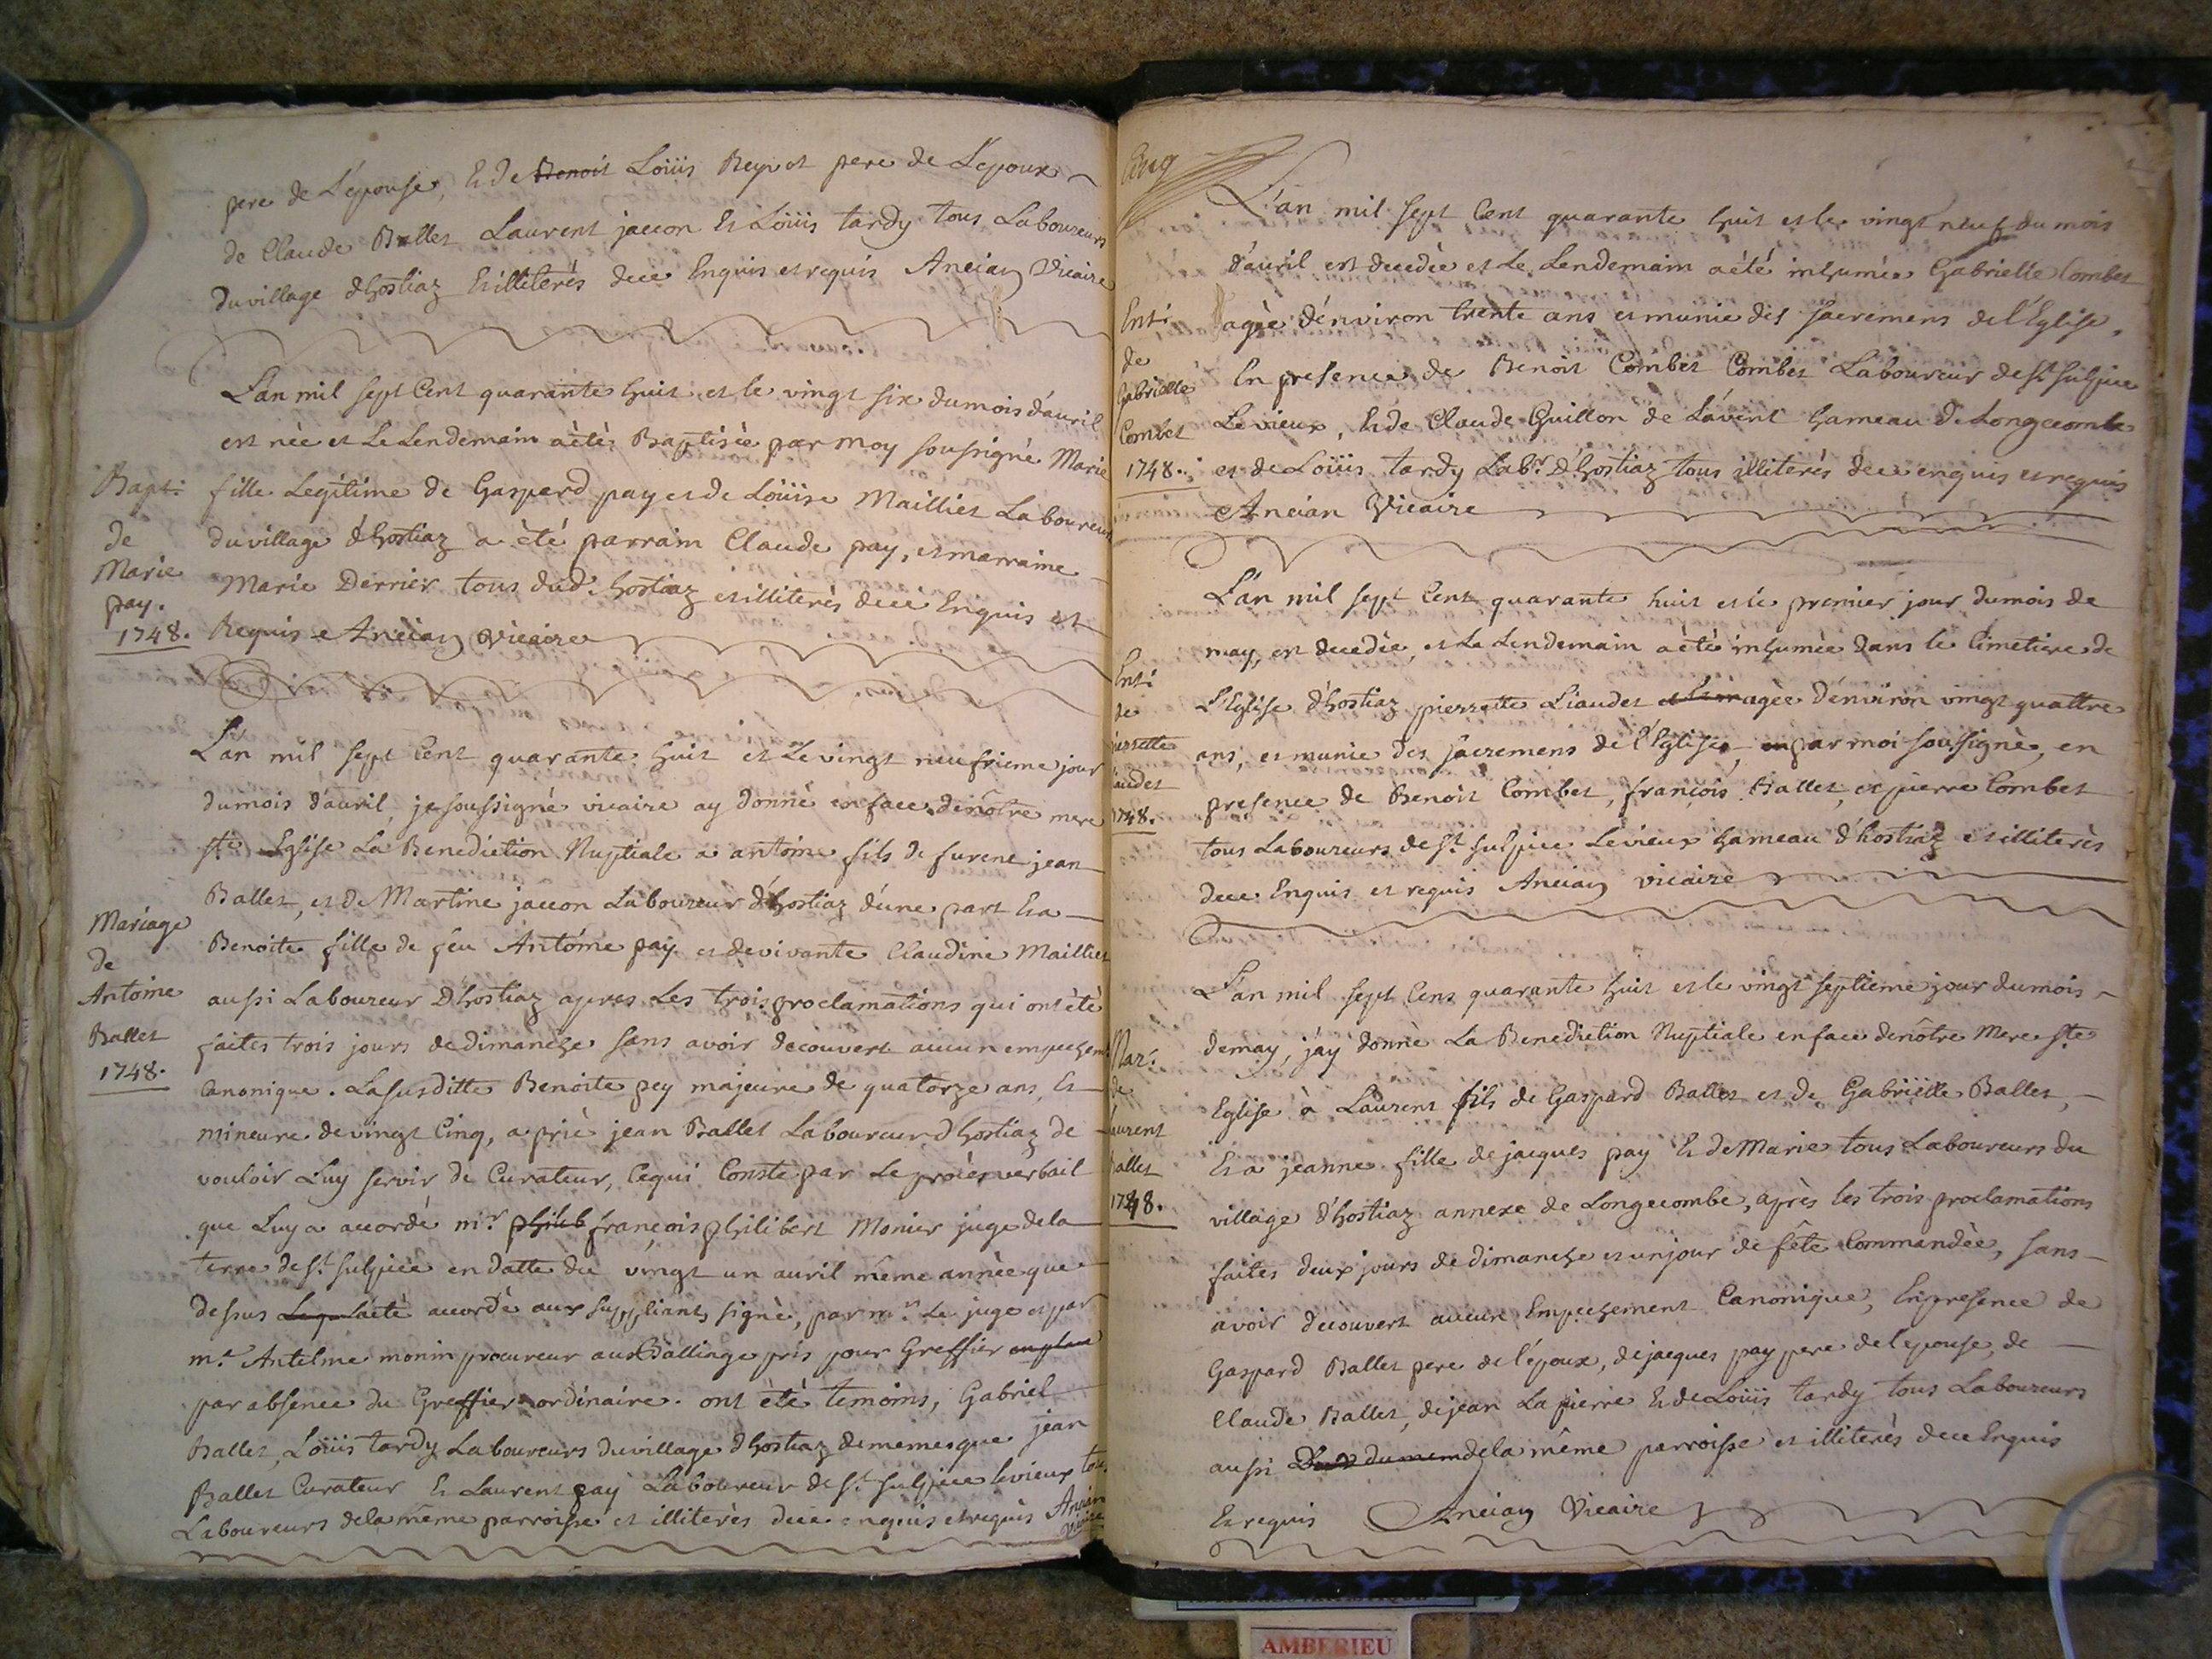 pere de L'epouse, Et de Benoit Loüis Reyvet pere de L'epoux
de Claude Ballet Laurent jaccon Et Loüis tardy tous Laboureurs
du village d'hostiaz Et illiterés dece Enquis et requis Ancian Vicaire
L'an mil sept Cent quarante huit et le vingt six du mois d'auril
est née et Le Lendemain a èté Baptisée par moy soussigné Marie
fille Legitime de Gaspard pay et de Loüise Mailliet Laboureur
du village d'hostiaz a èté parrain Claude pay, et marraine
Marie Derrier tous dud. hostiaz et illiterès dece Enquis et
Requis Ancian Vicaire
Bapt:
de
Marie
pay.
1748.
L'an mil sept Cent quarante huit et Le vingt neufvieme jour
du mois d'auril, je soussigné vicaire ay donné en face de nôtre mere
ste Eglise La Benediction Nuptiale a antoine fils de furent jean
Ballet, et de Martine jaccon Laboureur d'hostiaz d'une part Et a
Benoite fille de feu Antoine pay et de vivante Claudine Mailliet
aussi Laboureur D'hostiaz apres Les trois proclamations qui ont èté
faites trois jours de dimanche sans avoir decouvert aucun empechemt
Canonique. La susditte Benoite pey majeure de quatorze ans, Et
mineure de vingt Cinq, a prié jean Ballet Laboureur d'hostiaz de
vouloir Luy servir de Curateur, Cequi Conste par Le procès verbail
que Luy a accordé mr. philib françois philibert Monier juge dela
terre de St. Sulpice en datte du vingt un auril même année que
dessus Le qu L'aèté accordé aux suppliants, signé, par mr. Le juge et par
mr. Antelme monin procureur aux Ballinge pris pour Greffier en place
par absence du Greffier ordinaire. ont èté temoins, Gabriel
Ballet, Loüis tardy Laboureurs du village d'hostiaz de memes que jean
Ballet Curateur Et Laurent pay Laboureur de St. Sulpice le vieux tous
Laboureurs dela même parroisse et illiterès dece enquis et requis Ancian
Vicaire
Mariage
de
Antoine
Ballet
1748.
L'an mil sept Cent quarante huit et le vingt neuf du mois
d'auril est decedèe et Le Lendemain a èté inhumée Gabrielle Combet
agèe d'environ trente ans et munie des sacremens de l'Eglise,
En presence de Benoit Combet Combet Laboureur de St. Sulpice
Le vieux, Et de Claude Guillon de Lávent hameau de Longecombe
et de Loüis tardy Labr. D'hostiaz tous illiterés dece enquis et requis
Ancian Vicaire
Ent:
de
Gabrielle
Combet
1748.
L'an mil sept Cent quarante huit et le premier jour du mois de
may, est decedèe, et Le Lendemain a èté inhumèe dans le Cimetiere de
L'Eglise d'hostiaz pierrette Liaudet agèe d'environ vingt quattre
ans, et munie des sacremens de l'Eglise, par moi soussigné, en
presence de Benoit Combet, françois Ballet, et pierre Combet
tous Laboureurs de St. Sulpice Le vieux hameau d'hostiaz et illiterès
dece Enquis et requis Ancian vicaire
Ent:
de
ierrette
iaudet
1748.
L'an mil sept Cent quarante huit et le vingt septieme jour du mois
de may, j'ay donné La Benediction Nuptiale en face de nôtre Mere ste
Eglise à Laurent fils de Gaspard Ballet et de Gabrielle Ballet,
Et a jeanne fille de jacques pay Et de Marie tous Laboureurs du
village d'hostiaz annexe de Longecombe, après les trois proclamations
faites deux jours de dimanche et un jour de fête Commandée, sans
avoir decouvert aucun Empechement Canonique, En presence de
Gaspard Ballet pere de l'epoux, de jacques pay pere de l'epouse, de
Claude Ballet, de jean La pierre Et de Loüis tardy tous Laboureurs
aussi du mem dela même parroisse et illiterès dece Enquis
Et requis Ancian Vicaire
Mar:
de
aurent
allet
1748.
AMBERIEU